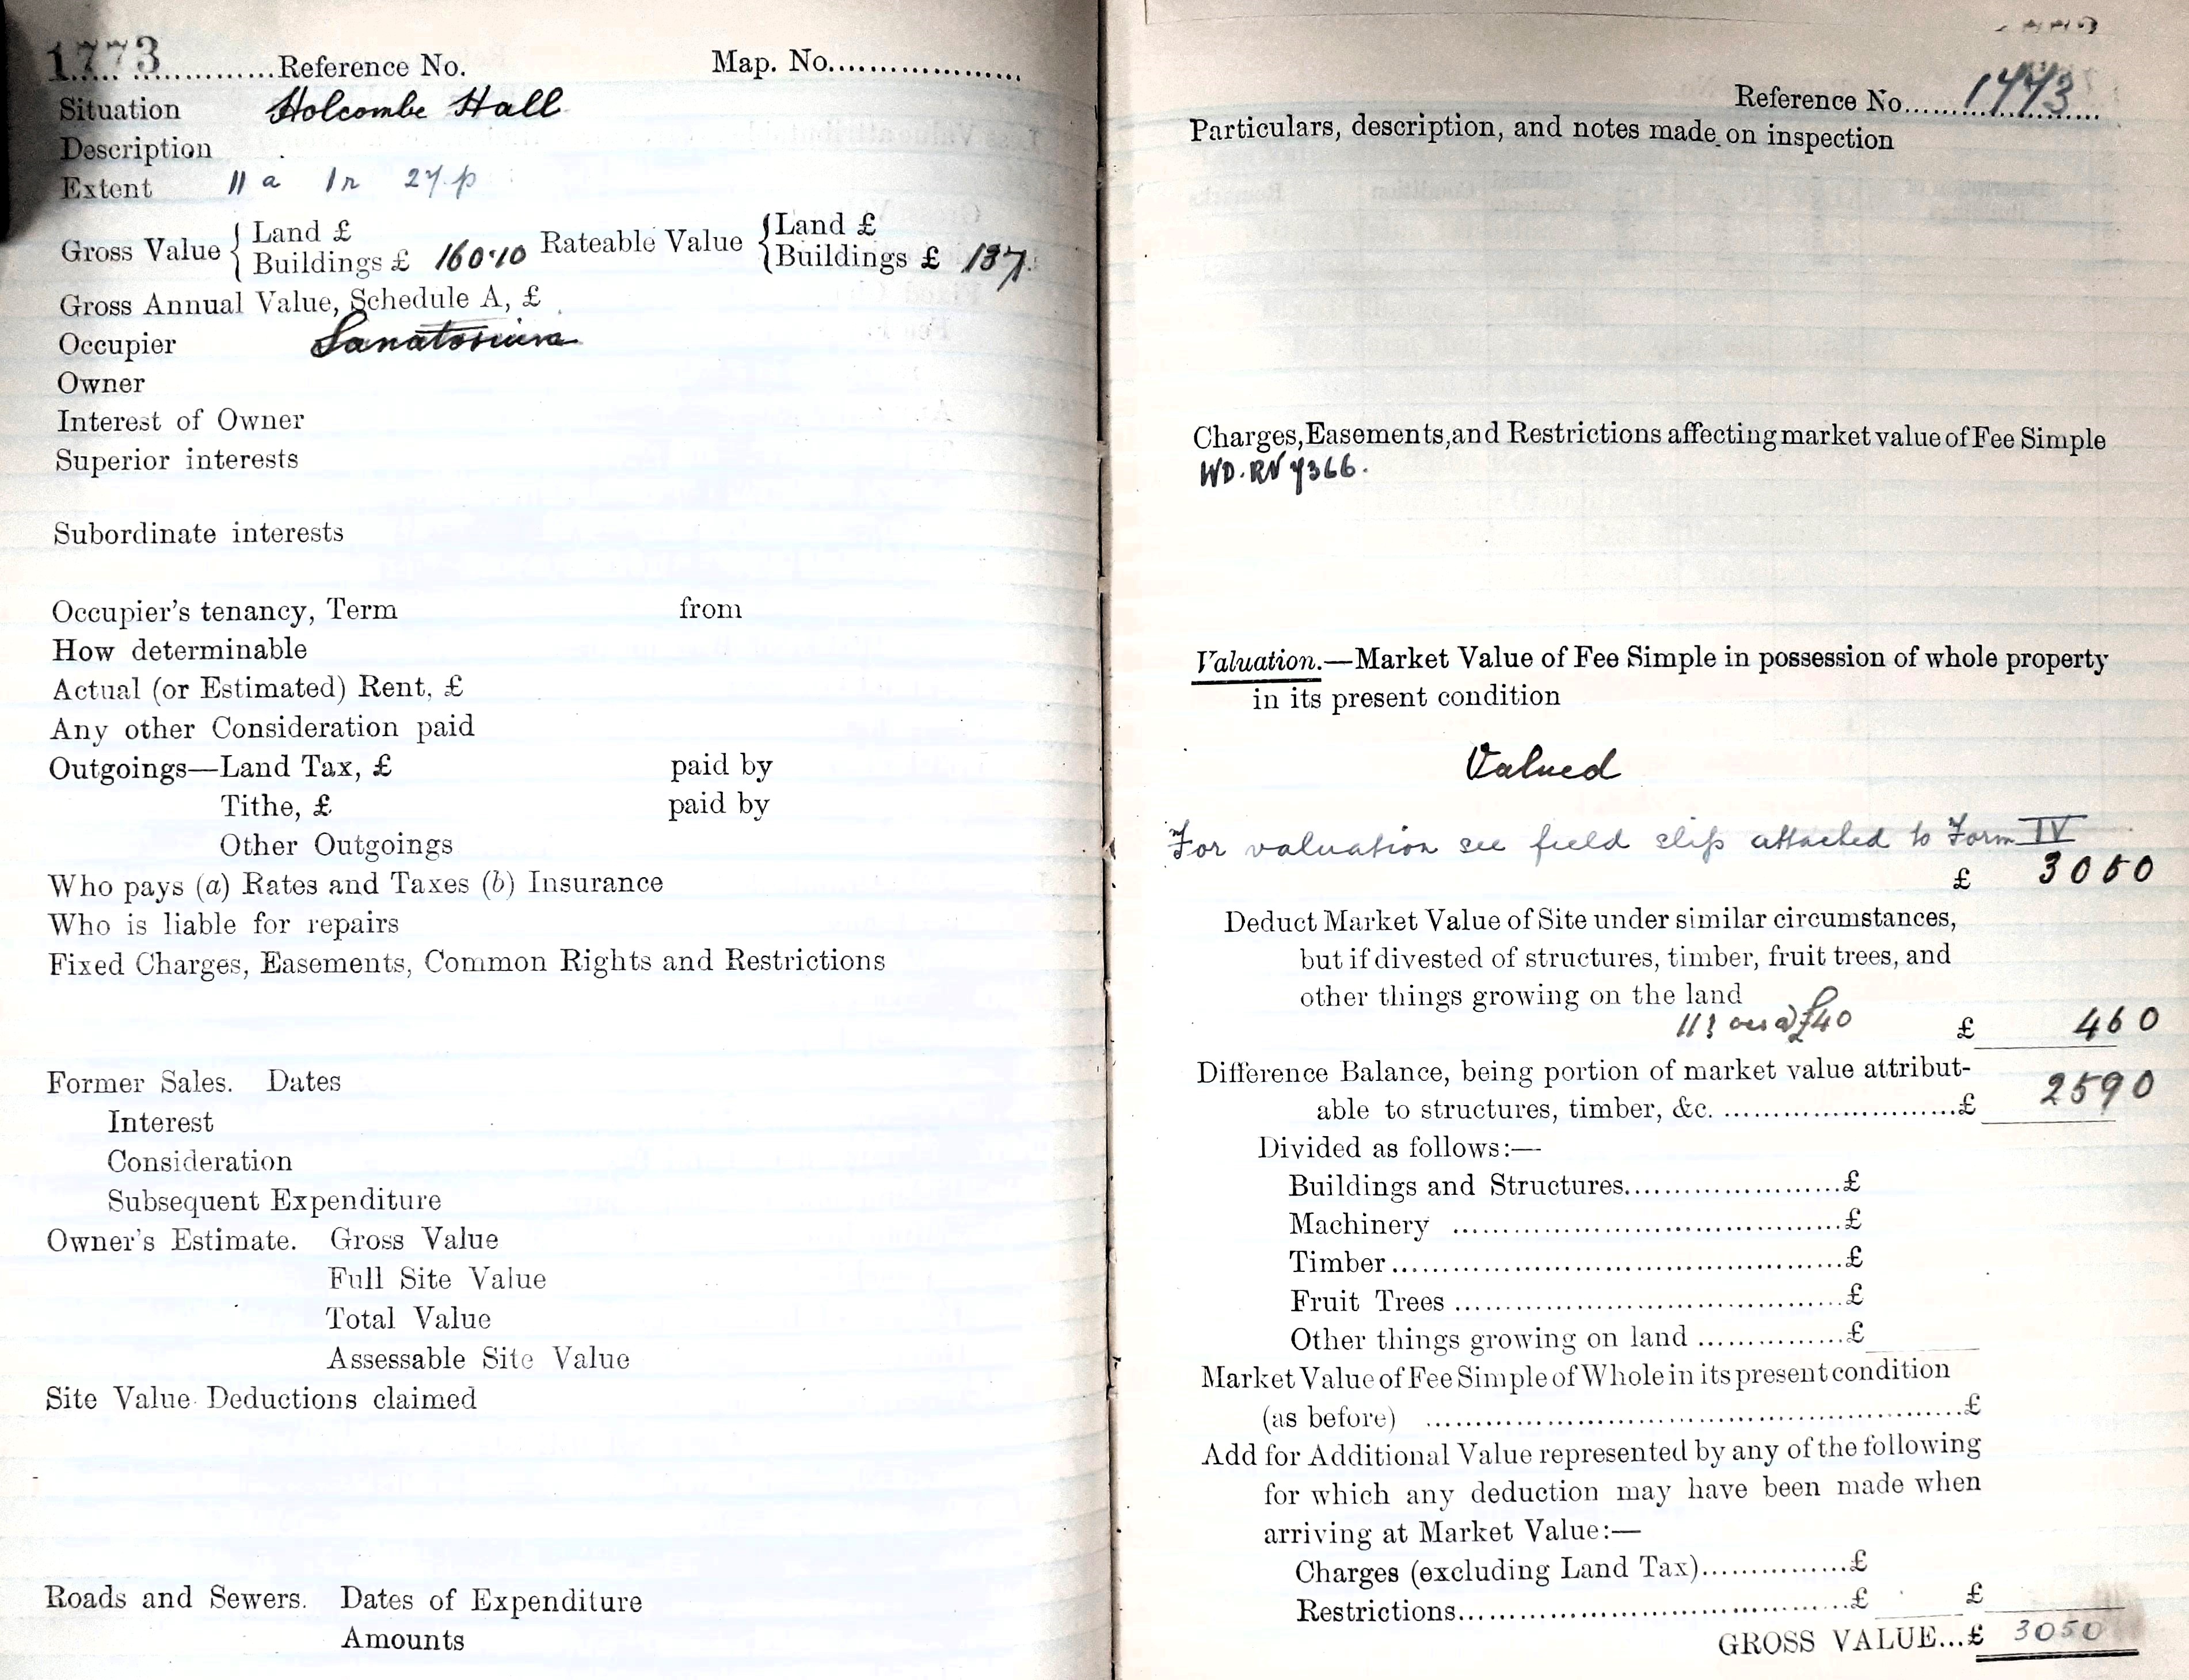 1773 ..............Reference No. Map. No....................
Situation Holcombe Hall
Description
Extent 11 a 1 r 27 p
Gross Value { Land £
Buildings £ 160.10 Rateable Value { Land £
Buildings £ 137.
Gross Annual Value, Schedule A, £
Occupier Sanatorium
Owner
Interest of Owner
Superior interests
Subordinate interests
Occupier's tenancy, Term from
How determinable
Actual (or Estimated) Rent, £
Any other Consideration paid
Outgoings—Land Tax, £ paid by
Tithe, £ paid by
Other Outgoings
Who pays (a) Rates and Taxes (b) Insurance
Who is liable for repairs
Fixed Charges, Easements, Common Rights and Restrictions
Former Sales. Dates
Interest
Consideration
Subsequent Expenditure
Owner's Estimate. Gross Value
Full Site Value
Total Value
Assessable Site Value
Site Value Deductions claimed
Roads and Sewers. Dates of Expenditure
Amounts
Reference No......1773
Particulars, description, and notes made on inspection
Charges, Easements, and Restrictions affecting market value of Fee Simple
WD. RN 7366.
Valuation.—Market Value of Fee Simple in possession of whole property
in its present condition
Valued
For valuation see field slip attached to Form IV
£ 3050
Deduct Market Value of Site under similar circumstances,
but if divested of structures, timber, fruit trees, and
other things growing on the land
@ £40 £ 460
Difference Balance, being portion of market value attribut-
able to structures, timber, &c. ........................£ 2590
Divided as follows:—
Buildings and Structures......................£
Machinery ......................................£
Timber............................................£
Fruit Trees ......................................£
Other things growing on land ..............£
Market Value of Fee Simple of Whole in its present condition
(as before) ......................................................£
Add for Additional Value represented by any of the following
for which any deduction may have been made when
arriving at Market Value:—
Charges (excluding Land Tax)...............£
Restrictions......................................£ £
GROSS VALUE...£ 3050